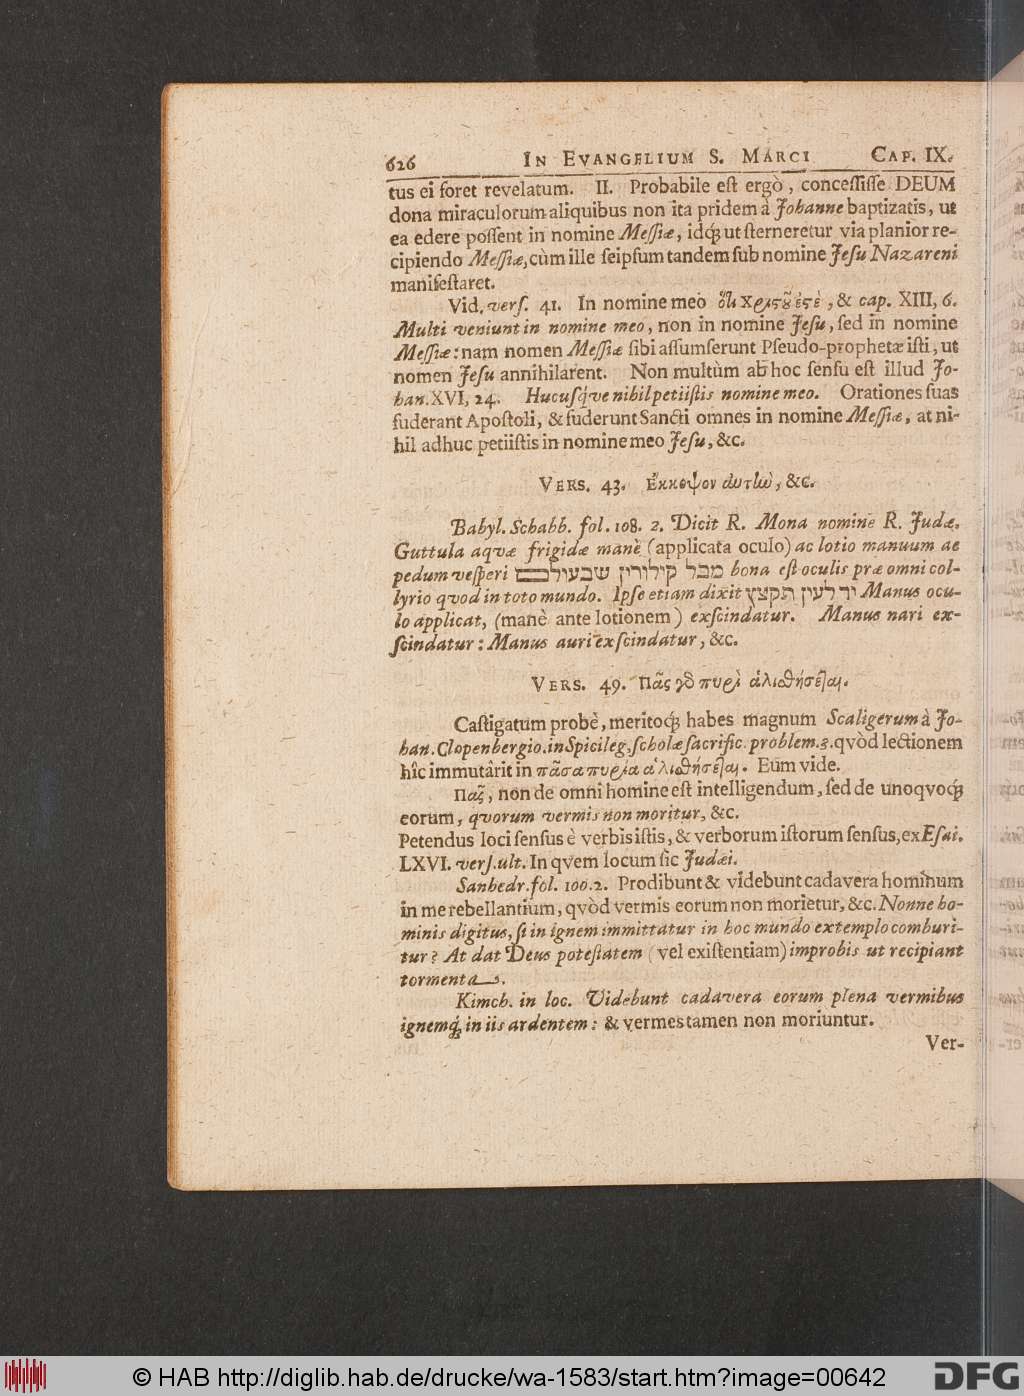 626 IN EVANGELIUM S. MARCI CAP. IX.
tus ei foret revelatum. II. Probabile est ergò, concessisse DEUM
dona miraculorum aliquibus non ita pridem à Johanne baptizatis, ut
ea edere possent in nomine Messiæ, idq; ut sterneretur via planior re-
cipiendo Messiæ, cùm ille seipsum tandem sub nomine Jesu Nazareni
manifestaret.
Vid. vers. 41. In nomine meo ὅτι Χριςοῦ ἐςὲ, & cap. XIII, 6.
Multi veniunt in nomine meo, non in nomine Jesu, sed in nomine
Messiæ: nam nomen Messiæ sibi assumserunt Pseudo-prophetæ isti, ut
nomen Jesu annihilarent. Non multùm ab hoc sensu est illud Jo-
han. XVI, 24. Hucusq́; nihil petiistis nomine meo. Orationes suas
fuderant Apostoli, & fuderunt Sancti omnes in nomine Messiæ, at ni-
hil adhuc petiistis in nomine meo Jesu, &c.
VERS. 43. Ἔκκοψον αὐτὼ, &c.
Babyl. Schabb. fol. 108. 2. Dicit R. Mona nomine R. Judæ.
Guttula aquæ frigidæ manè (applicata oculo) ac lotio manuum ac
pedum vesperi מכל קילורין שבעולם bona est oculis præ omni col-
lyrio qvod in toto mundo. Ipse etiam dixit יד לעין תקצץ Manus ocu-
lo applicat, (manè ante lotionem) exscindatur. Manus nari ex-
scindatur: Manus auri exscindatur, &c.
VERS. 49. Πᾶς γὸ πυρὶ ἁλισθήσεται.
Castigatum probè, meritoq; habes magnum Scaligerum à Jo-
han. Clopenbergio. in Spicileg. scholæ sacrific. problem. 3. qvòd lectionem
hîc immutârit in πᾶσα πυρία ἁλισθήσεται. Eum vide.
Πᾶς, non de omni homine est intelligendum, sed de unoqvoq;
eorum, qvorum vermis non moritur, &c.
Petendus loci sensus è verbis istis, & verborum istorum sensus, ex Esai.
LXVI. vers. ult. In qvem locum sic Judæi.
Sanhedr. fol. 100. 2. Prodibunt & videbunt cadavera hominum
in me rebellantium, qvòd vermis eorum non morietur, &c. Nonne ho-
minis digitus, si in ignem immittatur in hoc mundo extemplo comburi-
tur? At dat Deus potestatem (vel existentiam) improbis ut recipiant
tormenta.
Kimch. in loc. Videbunt cadavera eorum plena vermibus
ignemq́; in iis ardentem: & vermes tamen non moriuntur.
Ver-
© HAB http://diglib.hab.de/drucke/wa-1583/start.htm?image=00642
DFG